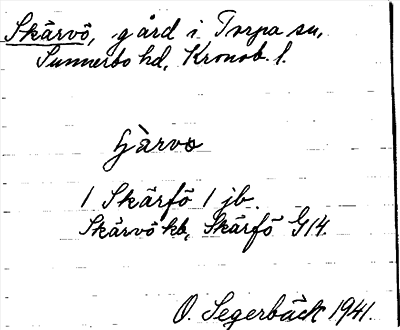 Skärvö, gård i Torpa sn,
Sunnerbo hd, Kronob. l.
1 Skärfö 1 jb.
Skärvö kb, Skärfö G14.
O. Segerbäck 1941.